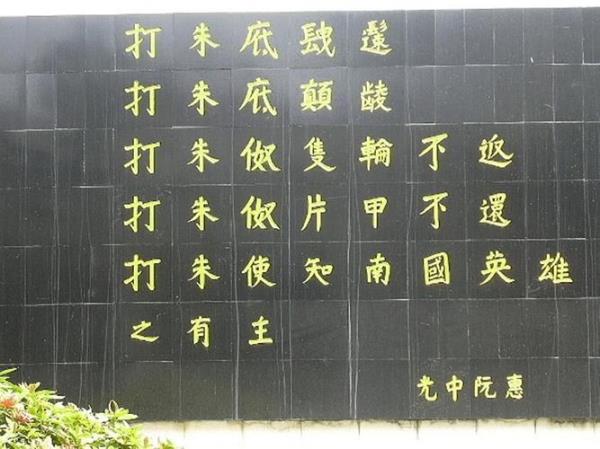 打朱底𨱽
打朱底顛𪘵
打朱伮隻輪不返
打朱伮片甲不還
打朱使知南國英雄
之有主
光中阮惠